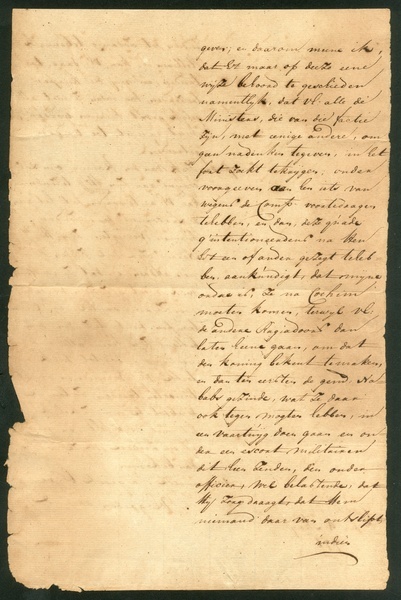 geven; en daarom meene ik,
dat het maar op deeze eene
wijze behoord te geschieden
namentlyk, dat vl. alle de
Ministers, die van die partie
zijn, met eenige andere, om
geen nadenken te geven, in het
fort zoekt te krygen, onder
voorgeeven hen iets van
wegens de Comp. voorteslaagen
te hebben, en dan, deze quade
g'intentioneerdens na hen
het een of ander gezegt te heb-
ben, aankundigt, dat myne
order is, ze na Cochim
moeten komen, terwyl vl.
de andere Ragiadoors kan
laten heene gaan, om dat
den koning bekent te maken,
en dan ten eersten de gem.
gezinde, wat ze daar
ook tegen mogten hebben, in
een vaartuyg doen gaan en on-
der een escort militairen
herwaards zenden, den onder
officier, wel belastende, dat
hij zorg draagt, dat hem
niemand daar van ontslipt,
indien